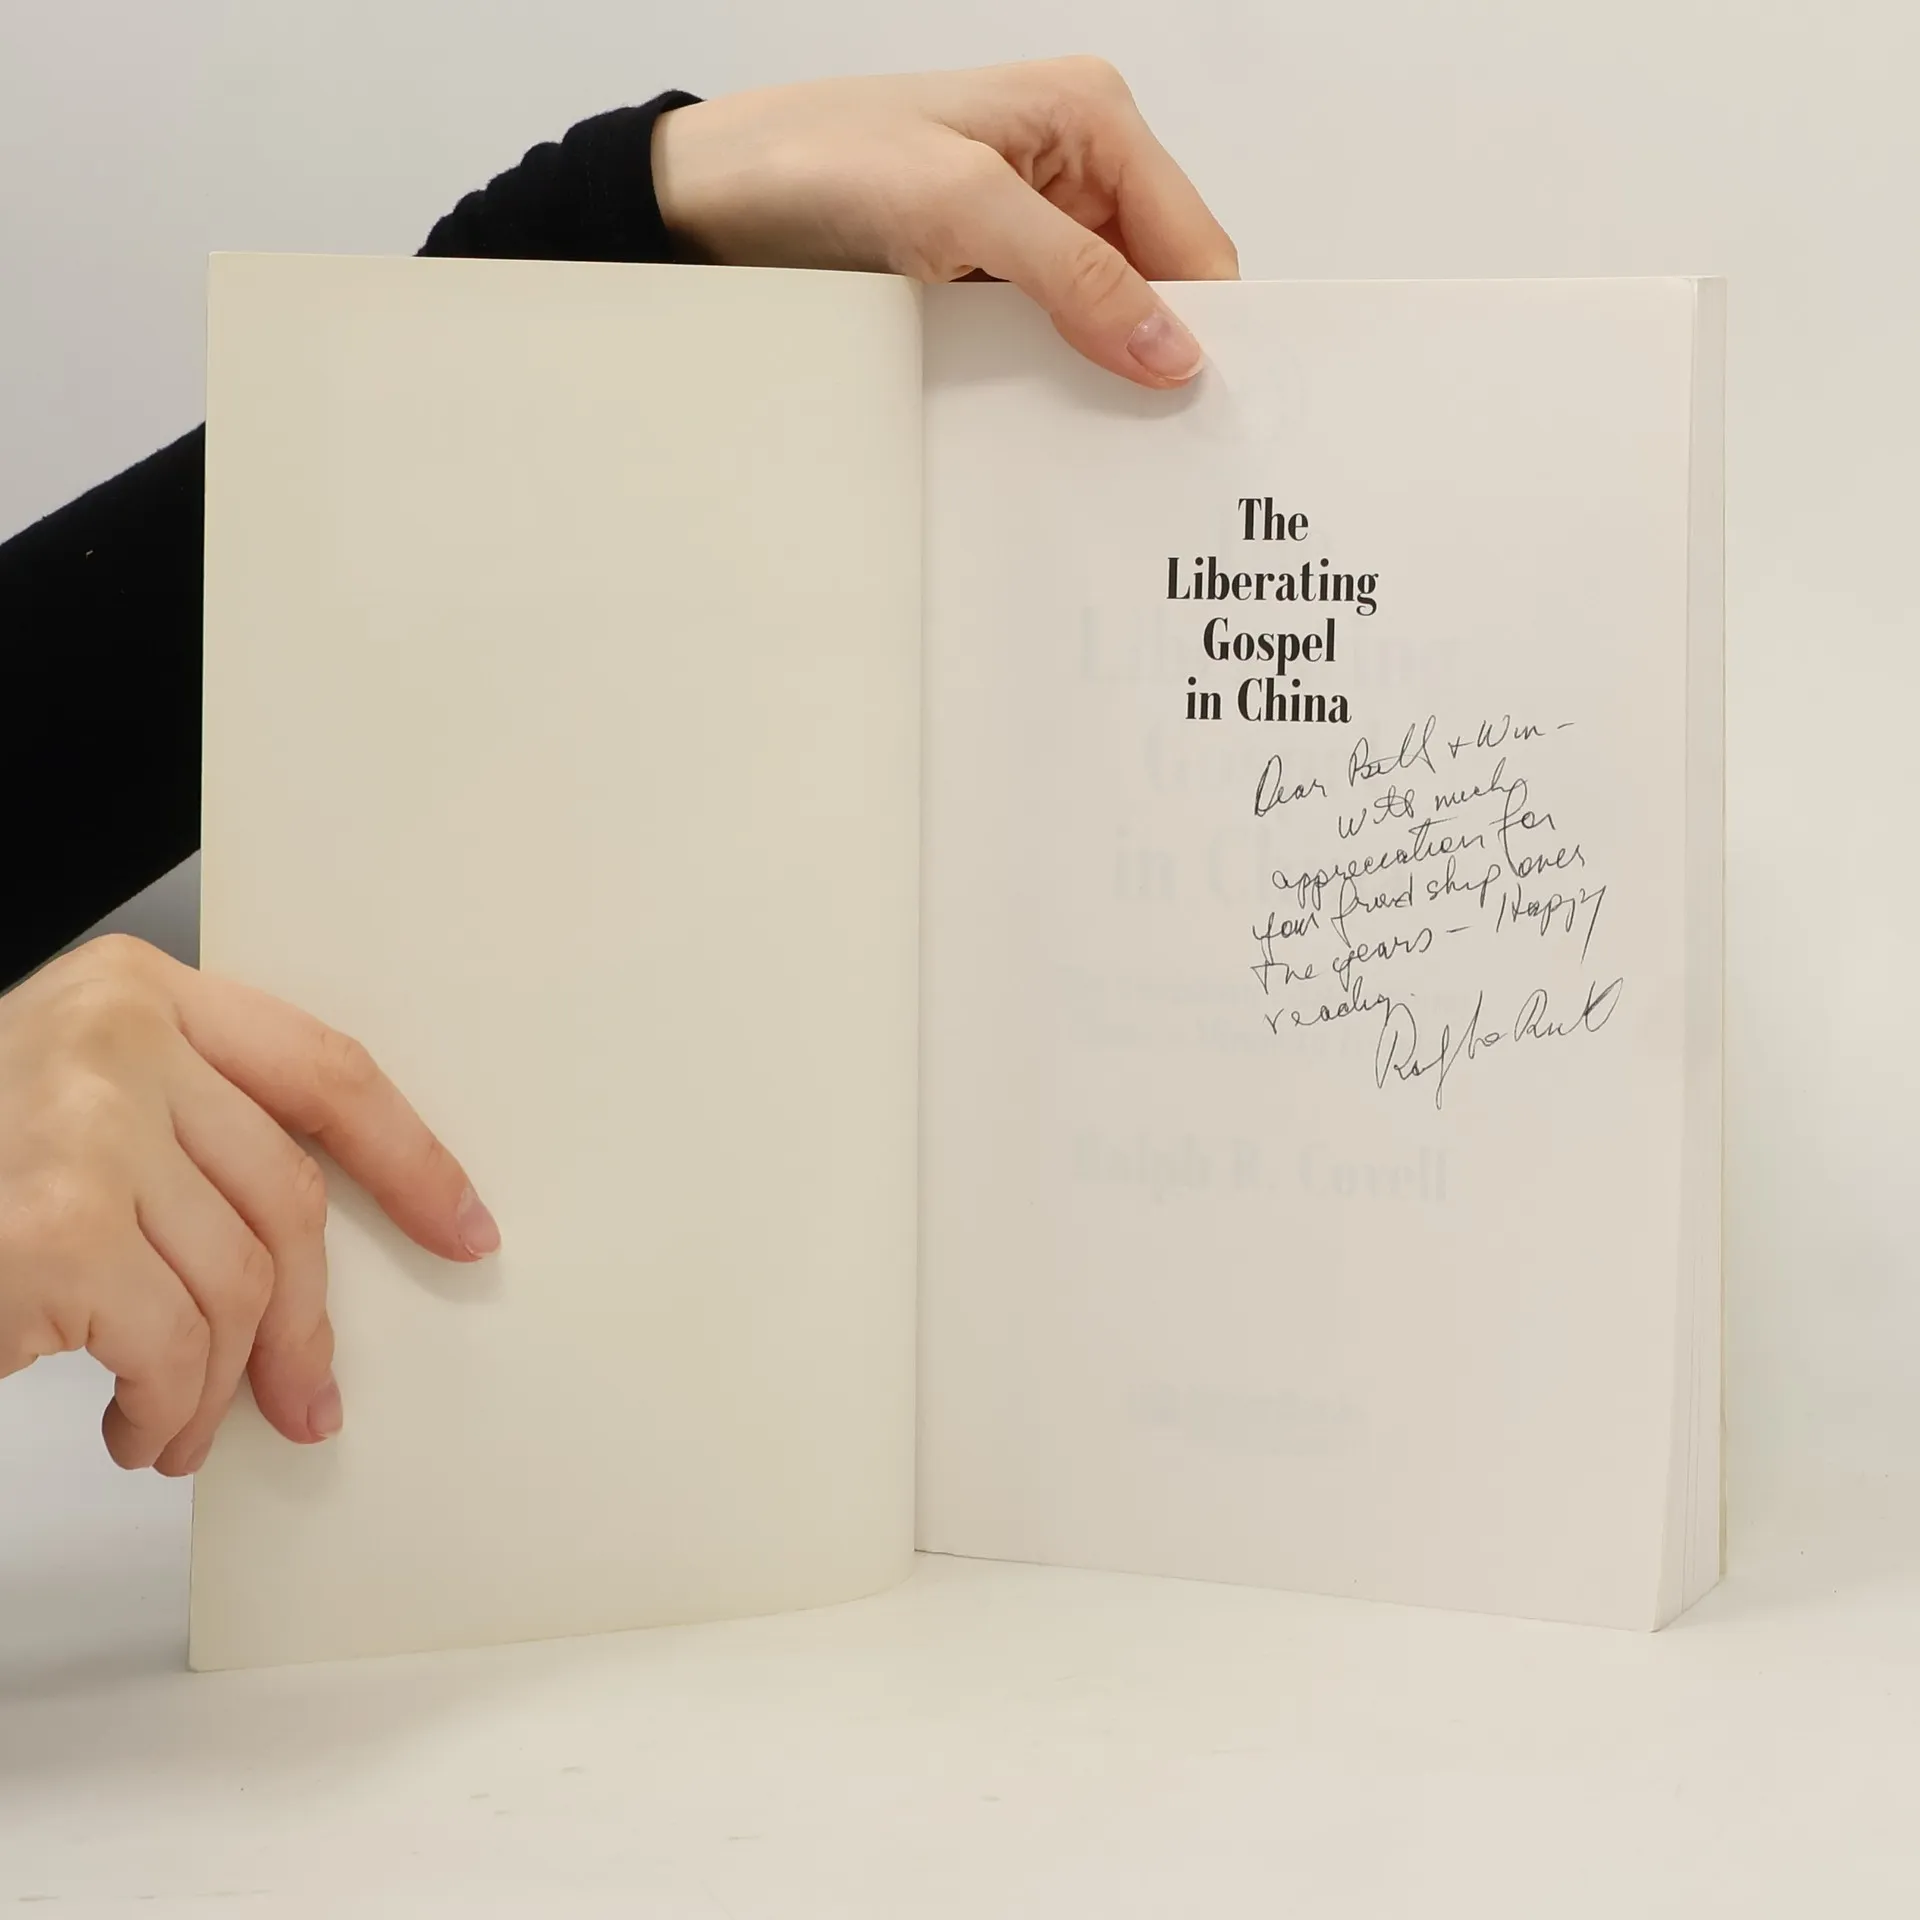 The
Liberating
Gospel
in China
Dear Bill + Win –
with much
appreciation for
your friendship over
the years – Happy
reading.
Ralph R. Covell